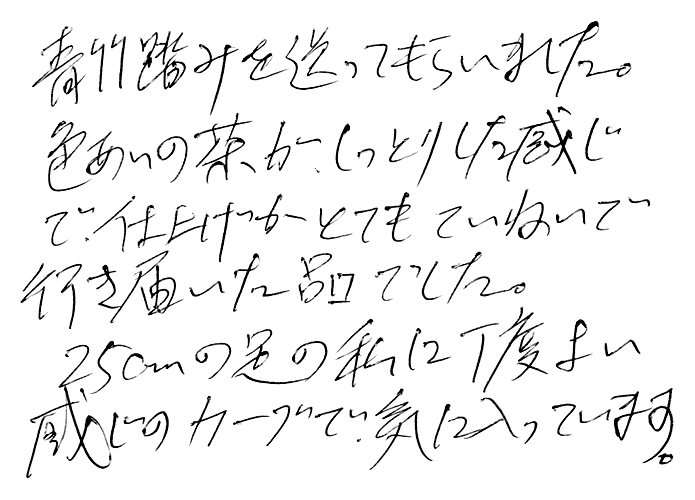 青竹踏みを送ってもらいました。
色あいの茶が、しっとりした感じ
で、仕上げがとてもていねいで
行き届いた品でした。
25cmの足の私に丁度よい
感じのカーブで、気に入っています。